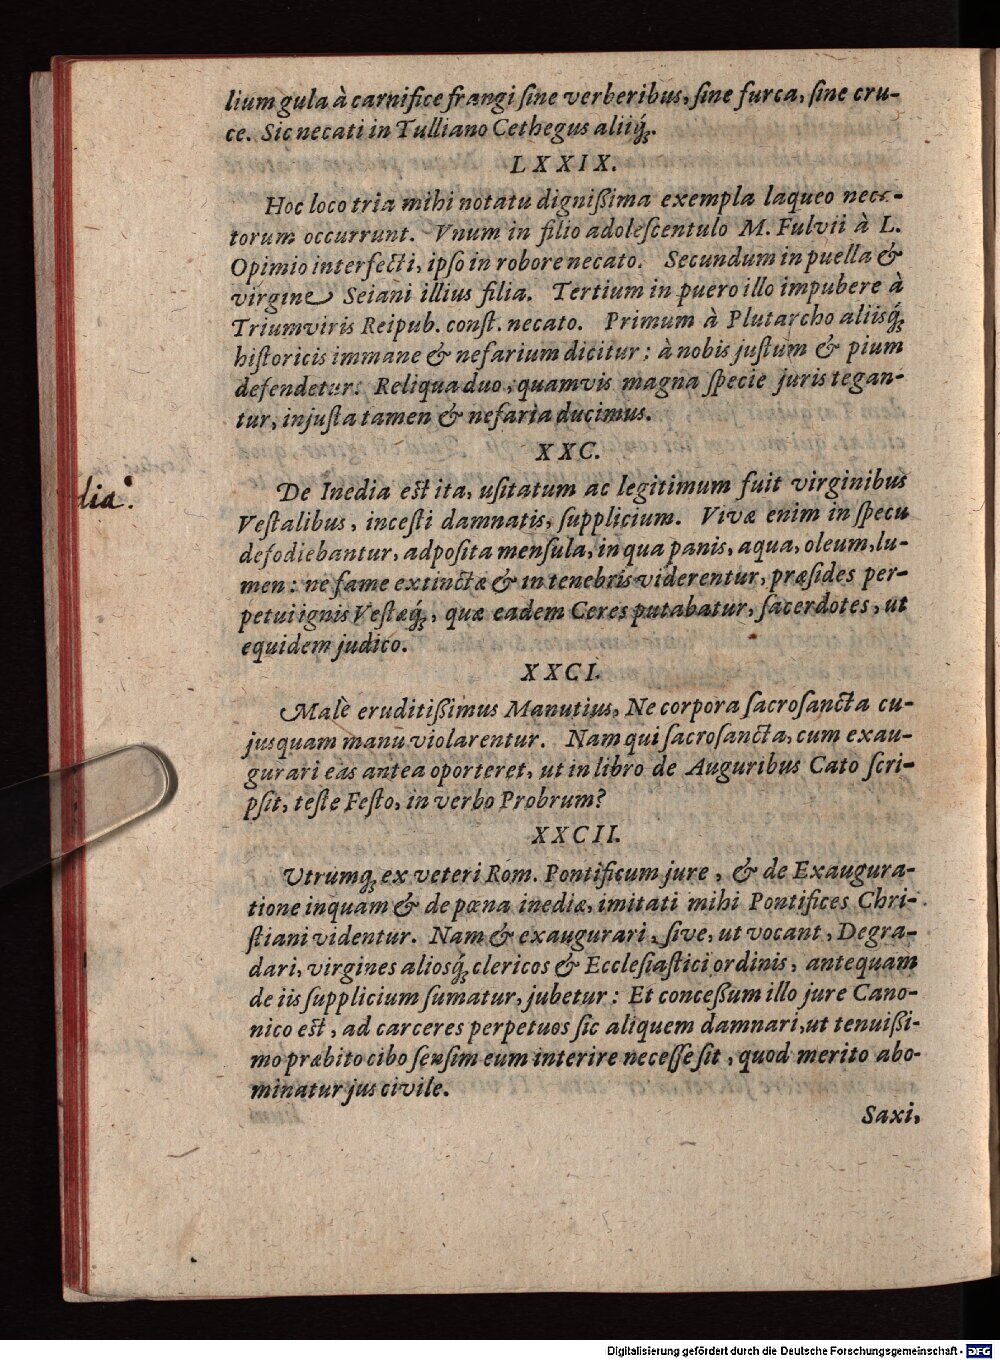 lium gula à carnifice frangi sine verberibus, sine furca, sine cru-
ce. Sic necati in Tulliano Cethegus aliiq́;.
LXXIX.
Hoc loco tria mihi notatu dignißima exempla laqueo neca-
torum occurrunt. Vnum in filio adolescentulo M. Fulvii à L.
Opimio interfecti, ipso in robore necato. Secundum in puella &
virgine Seiani illius filia. Tertium in puero illo impubere à
Triumviris Reipub. const. necato. Primum à Plutarcho aliisq́;
historicis immane & nefarium dicitur: à nobis justum & pium
defendetur. Reliqua duo, quamvis magna specie juris tegan-
tur, injusta tamen & nefaria ducimus.
XXC.
dia.
De Inedia est ita, usitatum ac legitimum fuit virginibus
Vestalibus, incesti damnatis, supplicium. Vivæ enim in specu
defodiebantur, adposita mensula, in qua panis, aqua, oleum, lu-
men: ne fame extinctæ & in tenebris viderentur, præsides per-
petui ignis Vestæq́;, quæ eadem Ceres putabatur, sacerdotes, ut
equidem judico.
XXCI.
Malè eruditißimus Manutius, Ne corpora sacrosancta cu-
jusquam manu violarentur. Nam qui sacrosancta, cum exau-
gurari eas antea oporteret, ut in libro de Auguribus Cato scri-
psit, teste Festo, in verbo Probrum?
XXCII.
Utrumq; ex veteri Rom. Pontificum jure, & de Exaugura-
tione inquam & de pœna inediæ, imitati mihi Pontifices Chri-
stiani videntur. Nam & exaugurari, sive, ut vocant, Degra-
dari, virgines aliosq́; clericos & Ecclesiastici ordinis, antequam
de iis supplicium sumatur, jubetur: Et conceßum illo jure Cano-
nico est, ad carceres perpetuos sic aliquem damnari, ut tenuißi-
mo præbito cibo sensim eum interire necesse sit, quod merito abo-
minatur jus civile.
Saxi,
Digitalisierung gefördert durch die Deutsche Forschungsgemeinschaft - DFG